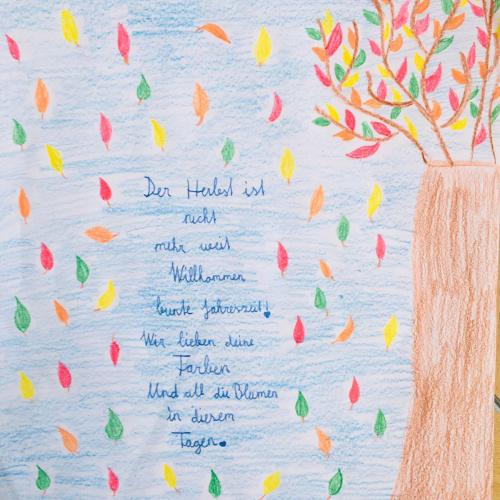 Der Herbst ist
nicht
mehr weit
Willkommen
bunte Jahreszeit!
Wir lieben deine
Farben
Und all die Blumen
in diesem
Tagen.